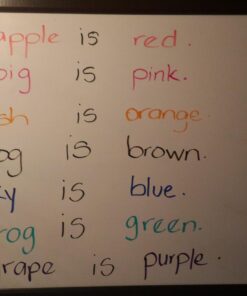 apple is red.
pig is pink.
sh is orange.
og is brown.
ky is blue.
rog is green.
rape is purple.